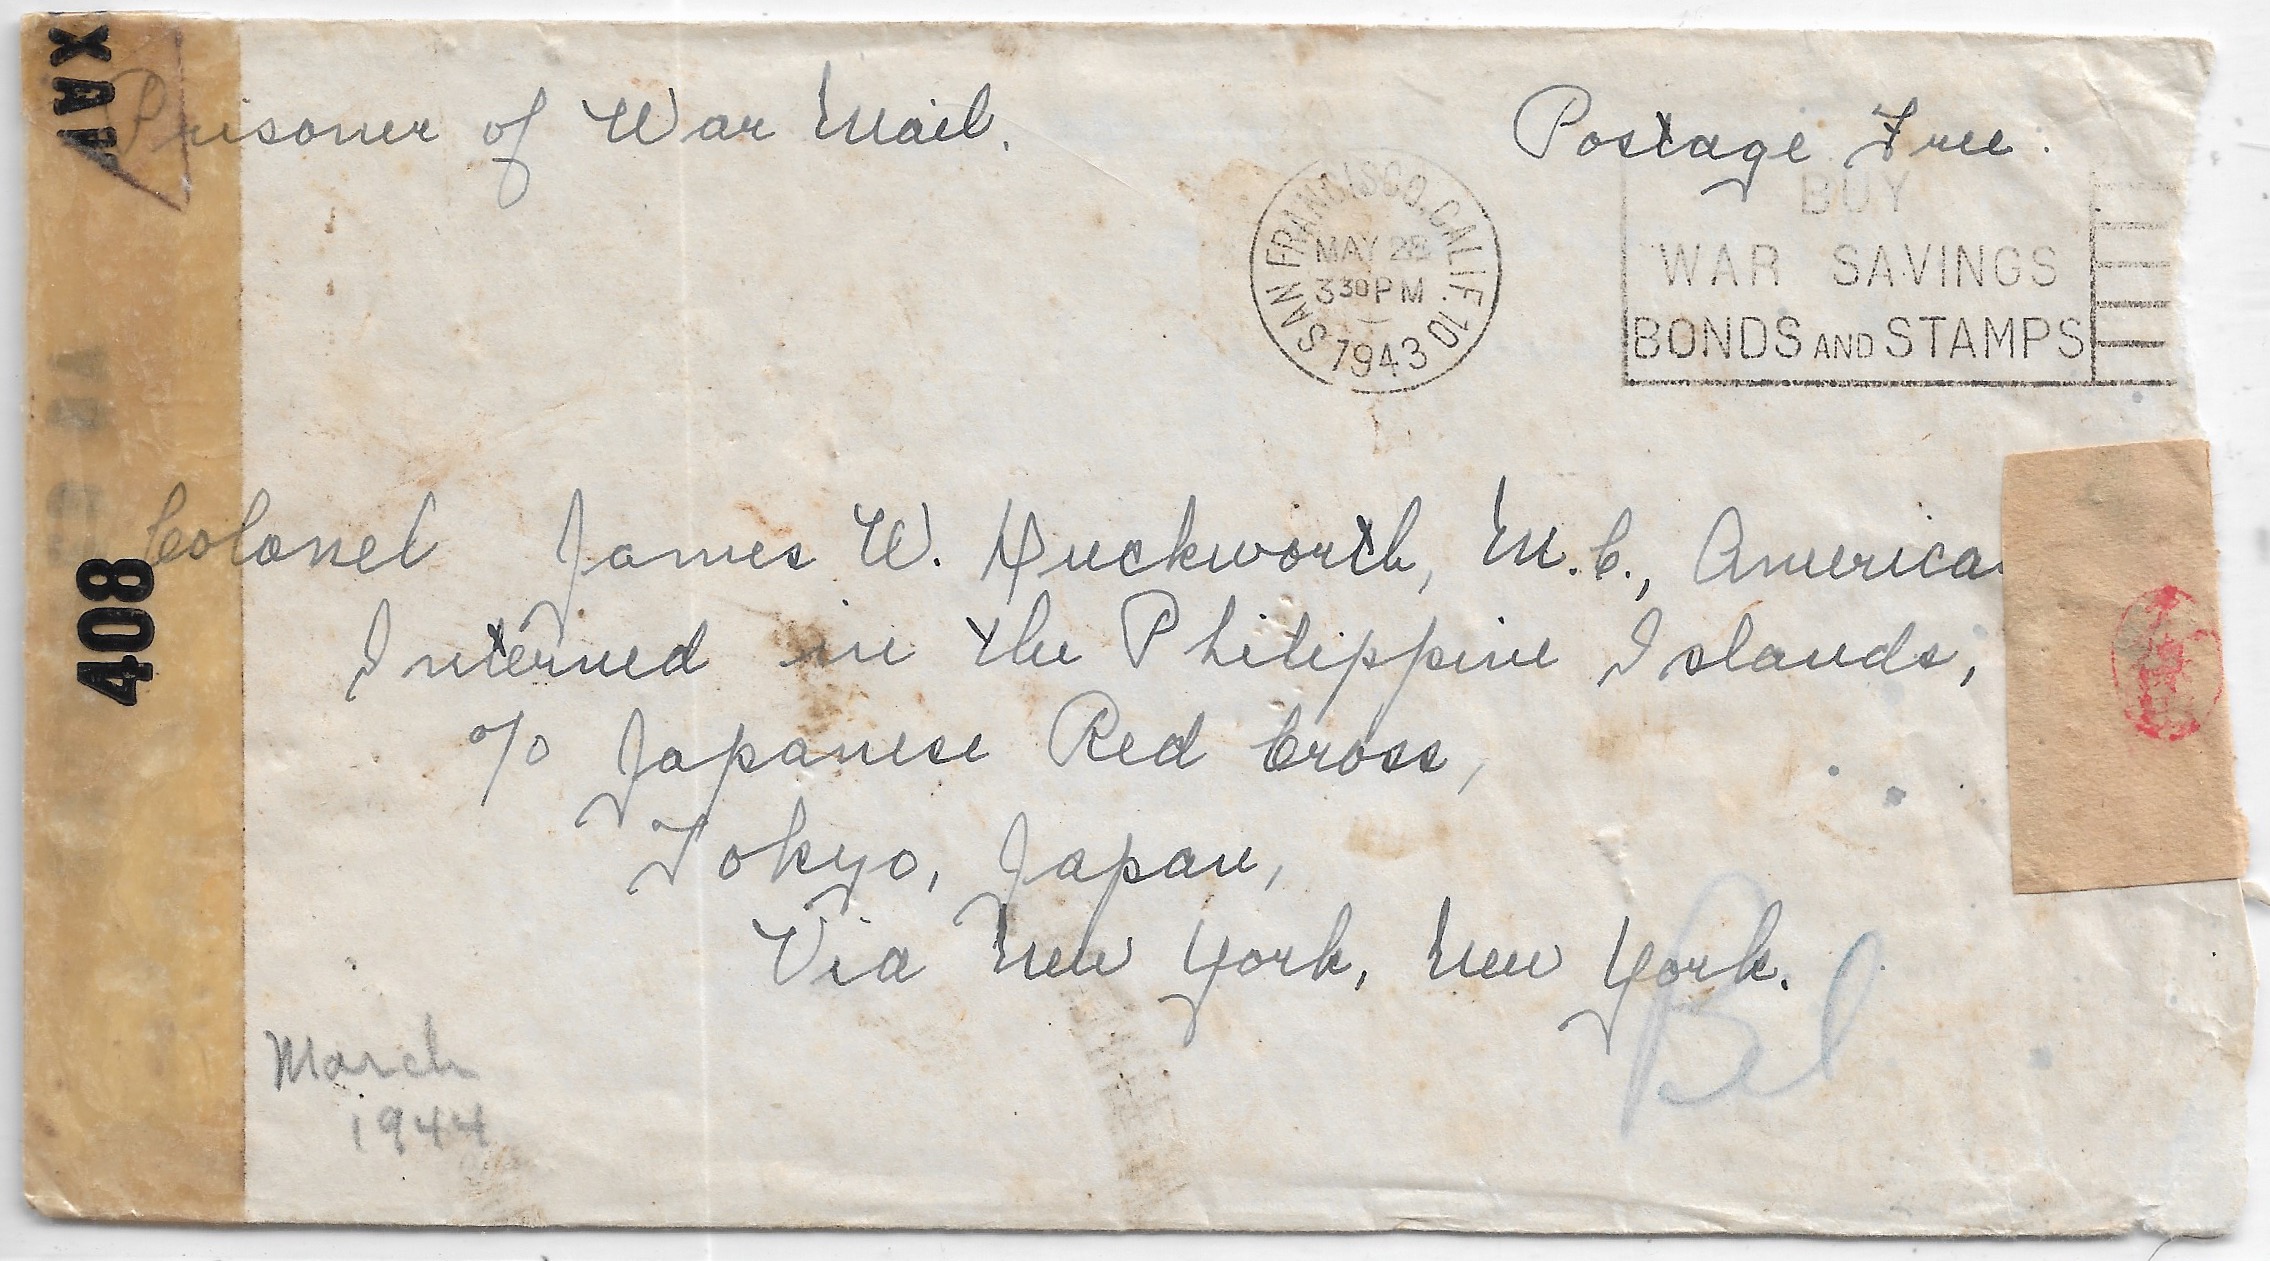 Prisoner of War Mail.
Postage Free.
SAN FRANCISCO, CALIF. 10
MAY 28
3 30 PM
1943
BUY
WAR SAVINGS
BONDS AND STAMPS
Colonel James W. Duckworth, M.C., America
Interned in the Philippine Islands,
c/o Japanese Red Cross,
Tokyo, Japan,
Via New York, New York.
March
1944
408